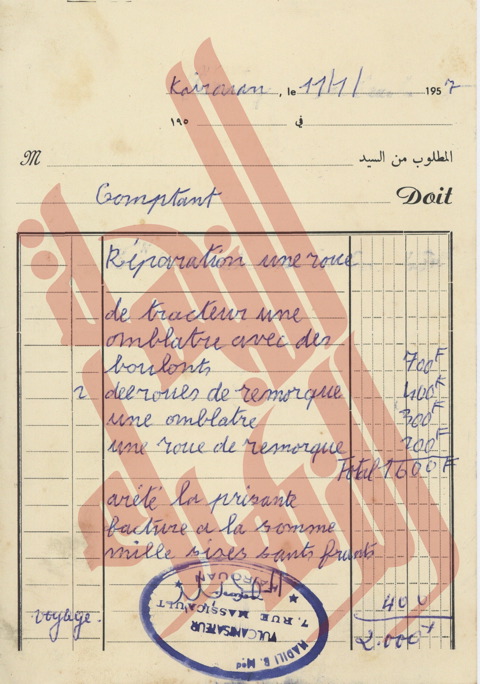 Kairouan, le 11/1/ 1957
في ١٩٥
M المطلوب من السيد
Comptant Doit
Réparation une roue
de tracteur une
omblatre avec des
boulonts 700F
2 deeroues de remorque 400F
une omblatre 300F
une roue de remorque 200F
Total 1600F
arété la prisante
facture a la somme
mille sises sants frants
voyage. 400
2.000F
KAIROUAN
7. RUE MASSICAULT
VULCANISATEUR
HADILI B. Med